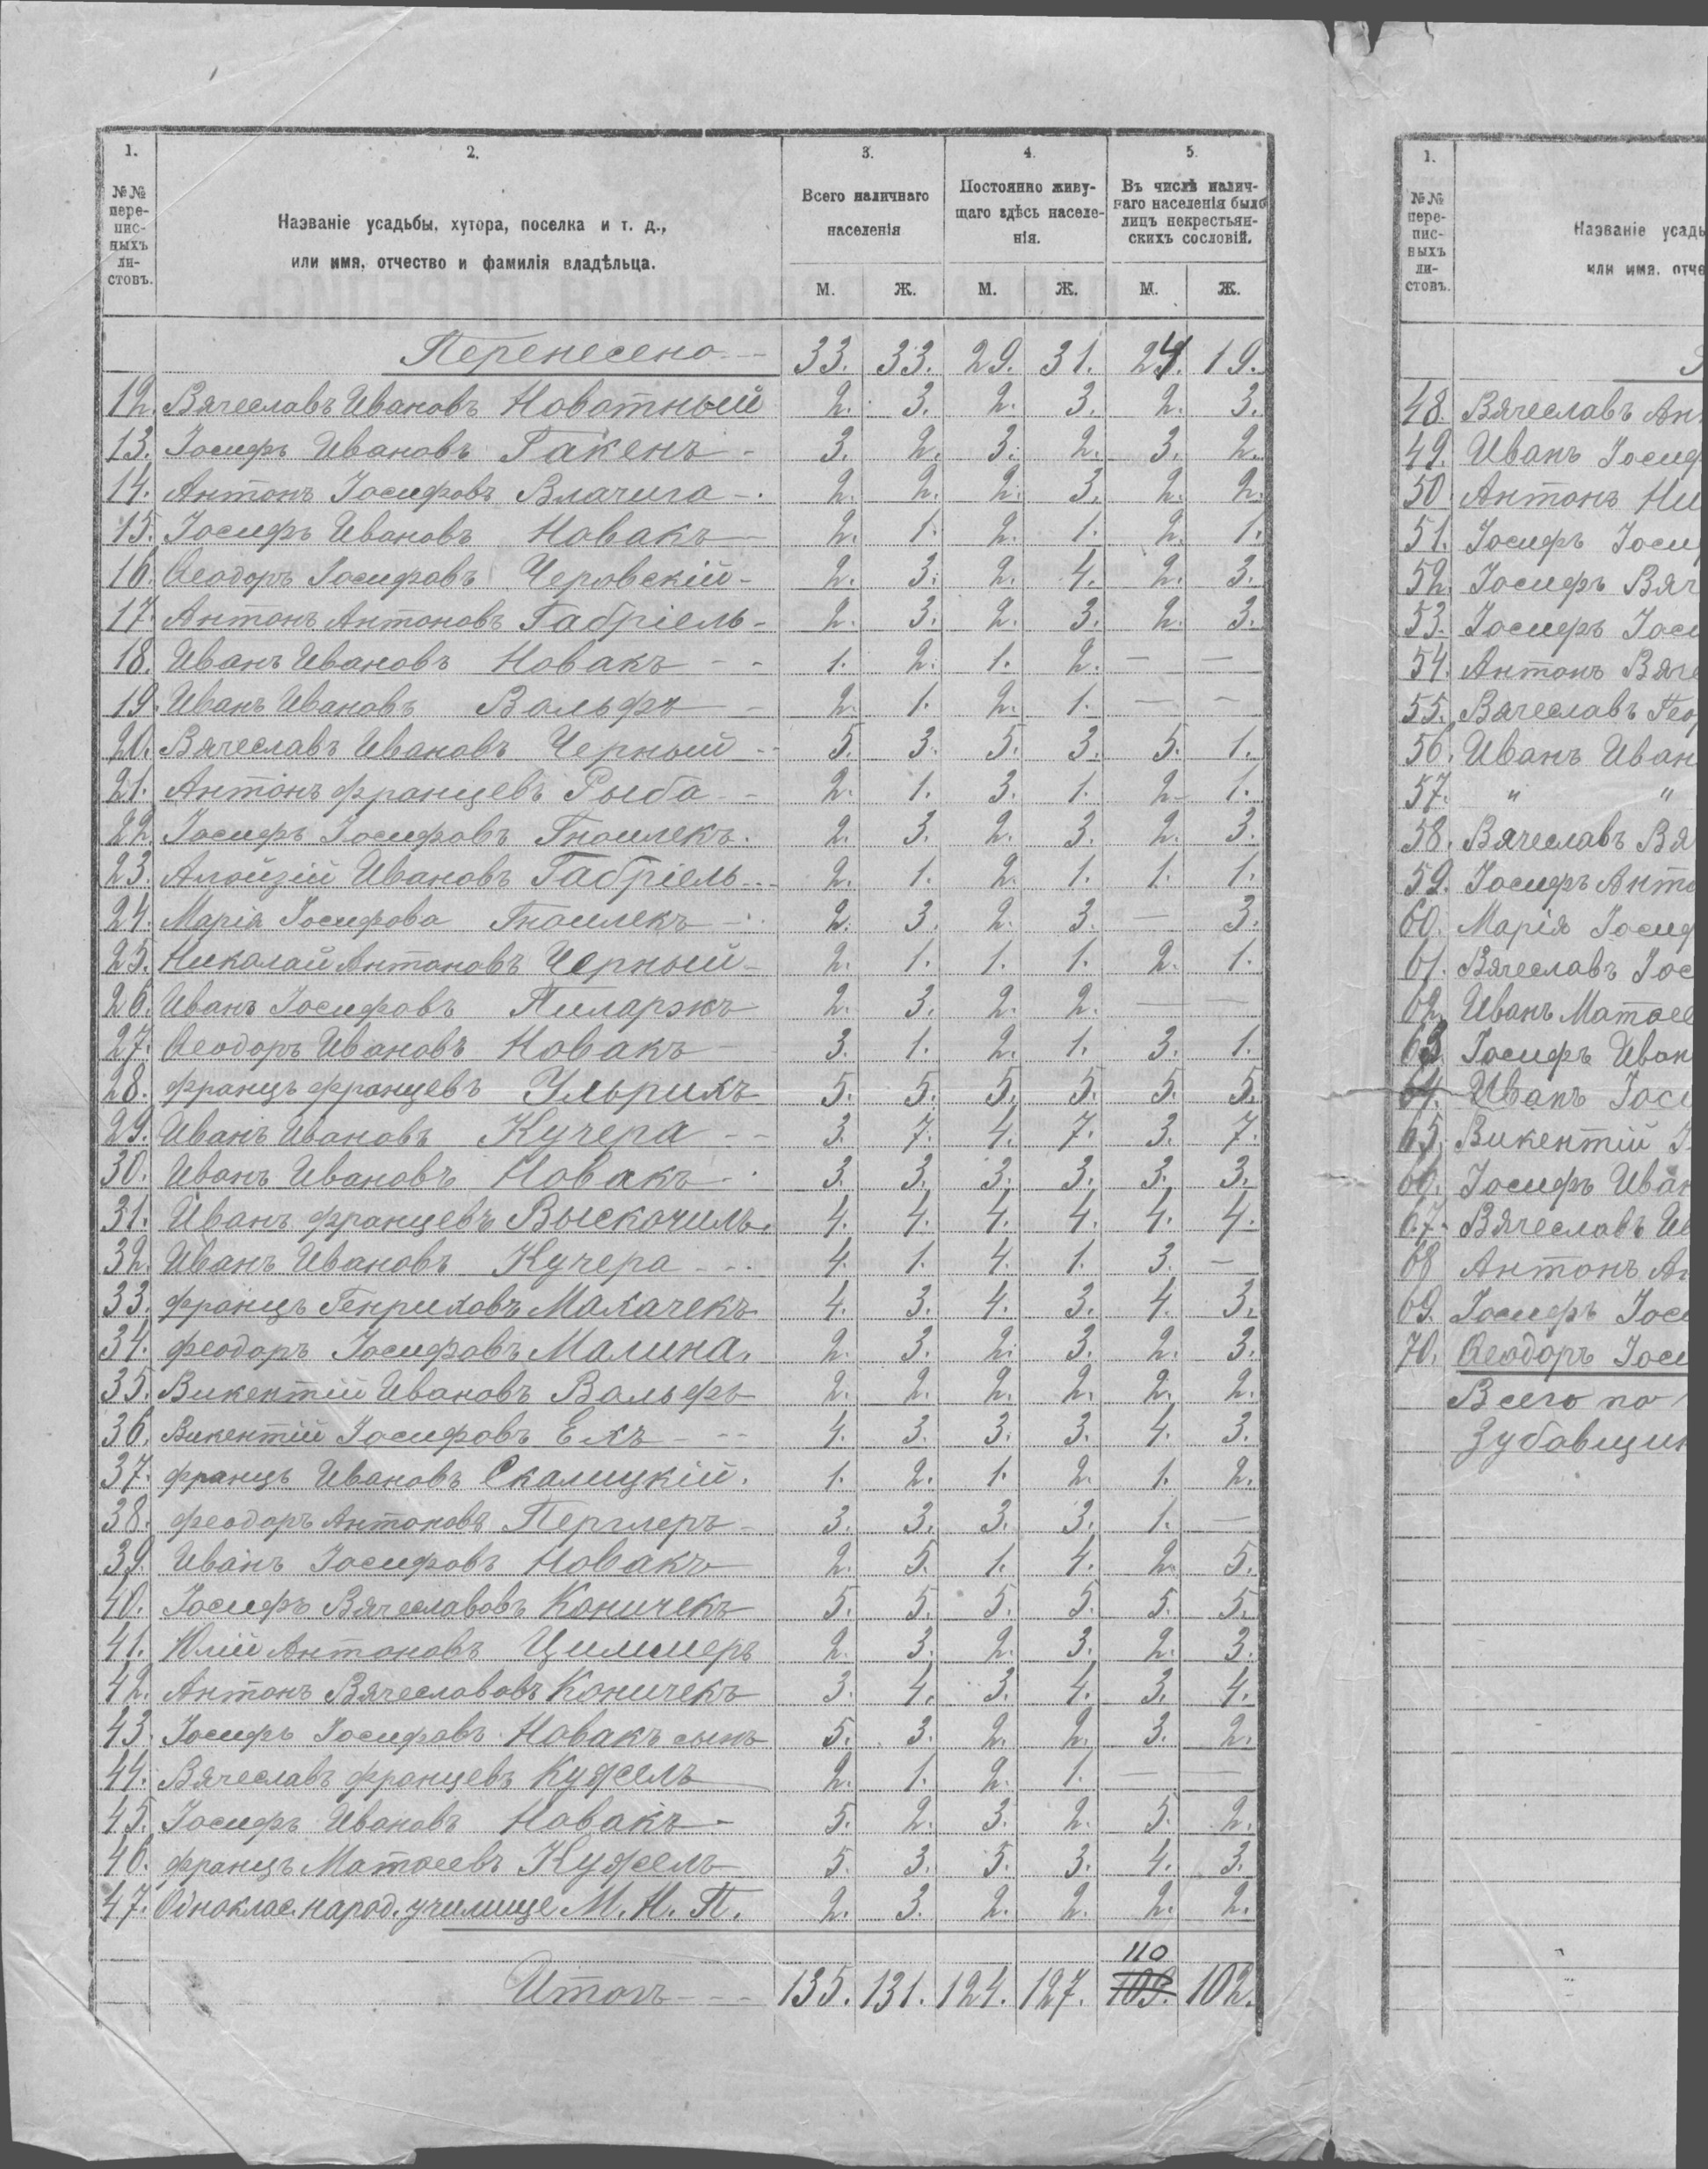 1. 2. 3. 4. 5.
№№ пере-пис-ныхъ ли-стовъ.
Названіе усадьбы, хутора, поселка и т. д.,
или имя, отчество и фамилія владѣльца.
Всего наличнаго
населенія
Постоянно живу-
щаго здѣсь населе-
нія.
Въ числѣ налич-
наго населенія было
лицъ некрестьян-
скихъ сословій.
М. Ж. М. Ж. М. Ж.
Перенесено 33. 33. 29. 31. 24. 19.
12. Вячеславъ Ивановъ Новотный 2. 3. 2. 3. 2. 3.
13. Іосифъ Ивановъ Гакенъ 3. 2. 3. 2. 3. 2.
14. Антонъ Іосифовъ Влачига 2. 2. 2. 3. 2. 2.
15. Іосифъ Ивановъ Новакъ 2. 1. 2. 1. 2. 1.
16. Ѳеодоръ Іосифовъ Черовскій 2. 3. 2. 4. 2. 3.
17. Антонъ Антоновъ Габріель 2. 3. 2. 3. 2. 3.
18. Иванъ Ивановъ Новакъ 1. 2. 1. 2. — —
19. Иванъ Ивановъ Вольфъ 2. 1. 2. 1. — —
20. Вячеславъ Ивановъ Черный 5. 3. 5. 3. 5. 1.
21. Антонъ Францевъ Рыба 2. 1. 3. 1. 2. 1.
22. Іосифъ Іосифовъ Гношлекъ 2. 3. 2. 3. 2. 3.
23. Алойзій Ивановъ Габріель 2. 1. 2. 1. 1. 1.
24. Марія Іосифова Гношлекъ 2. 3. 2. 3. — 3.
25. Николай Антоновъ Черный 2. 1. 1. 1. 2. 1.
26. Иванъ Іосифовъ Пиларжъ 2. 3. 2. 2. — —
27. Ѳеодоръ Ивановъ Новакъ 3. 1. 2. 1. 3. 1.
28. Францъ Францевъ Ульрихъ 5. 5. 5. 5. 5. 5.
29. Иванъ Ивановъ Кучера 3. 7. 4. 7. 3. 7.
30. Иванъ Ивановъ Новакъ 3. 3. 3. 3. 3. 3.
31. Иванъ Францевъ Выскочиль. 4. 4. 4. 4. 4. 4.
32. Иванъ Ивановъ Кучера 4. 1. 4. 1. 3. —
33. Францъ Генриховъ Махачекъ 4. 3. 4. 3. 4. 3.
34. Феодоръ Іосифовъ Малина. 2. 3. 2. 3. 2. 3.
35. Викентій Ивановъ Вальфъ 2. 2. 2. 2. 2. 2.
36. Викентій Іосифовъ Ехъ 4. 3. 3. 3. 4. 3.
37. Францъ Ивановъ Скалицкій. 1. 2. 1. 2. 1. 2.
38. Феодоръ Антоновъ Перглеръ 3. 3. 3. 3. 1. —
39. Иванъ Іосифовъ Новакъ 2. 5. 1. 4. 2. 5.
40. Іосифъ Вячеславовъ Коничекъ 5. 5. 5. 5. 5. 5.
41. Юлій Антоновъ Циммеръ 2. 3. 2. 3. 2. 3.
42. Антонъ Вячеславовъ Коничекъ 3. 4. 3. 4. 3. 4.
43. Іосифъ Іосифовъ Новакъ сынъ 5. 3. 2. 2. 3. 2.
44. Вячеславъ Францевъ Кужелъ 2. 1. 2. 1. — —
45. Іосифъ Ивановъ Новакъ 5. 2. 3. 2. 5. 2.
46. Францъ Матѳеевъ Кужелъ 5. 3. 5. 3. 4. 3.
47. Одноклас. народ. училище М. Н. П. 2. 3. 2. 2. 2. 2.
110
Итогъ 135. 131. 124. 127. 109. 102.
1.
№№ пере-пис-ныхъ ли-стовъ.
Названіе усадь
или имя, отче
48. Вячеславъ Ан
49. Иванъ Іосиф
50. Антонъ Ни
51. Іосифъ Іоси
52. Іосифъ Вяч
53. Іосифъ Іоси
54. Антонъ Вяче
55. Вячеславъ Гео
56. Иванъ Иван
57. " "
58. Вячеславъ Вя
59. Іосифъ Анто
60. Марія Іосиф
61. Вячеславъ Іос
62. Иванъ Матѳе
63. Іосифъ Иван
64. Иванъ Іоси
65. Викентій І
66. Іосифъ Иван
67. Вячеславъ Ив
68. Антонъ Ан
69. Іосифъ Іоси
70. Ѳеодоръ Іоси
Всего по
Зубовщин